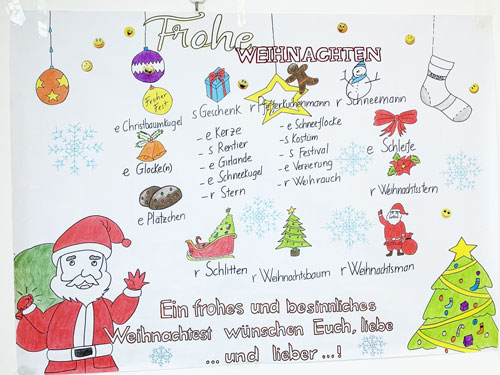 Frohe
WEIHNACHTEN
Froher
Fest
e Christbaumkugel
s Geschenk
r Pfefferkuchenmann
r Schneemann
- e Kerze
- s Rentier
- e Girlande
- e Schneekugel
- r Stern
- e Schneeflocke
- s Kostüm
- s Festival
- e Verzierung
- r Weihrauch
e Glocke(n)
e Schleife
e Plätzchen
r Weihnachtsstern
r Schlitten
r Weihnachtsbaum
r Weihnachtsman
Ein frohes und besinnliches
Weihnachtest wünschen Euch, liebe
... und lieber ...!